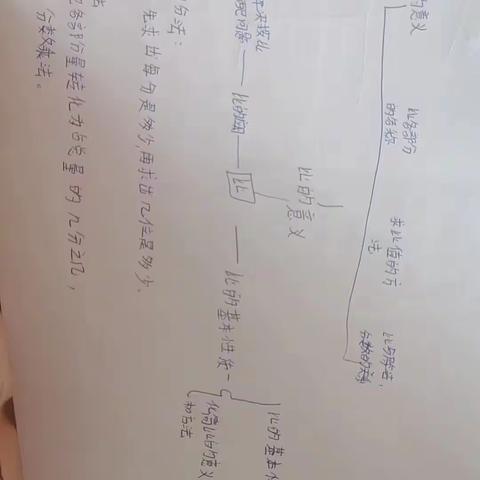 的意义
比各部分
的名称
求比值的方
法
比与除法,
分数的关系
比的意义
比
比的应用
配问题
比的基本性质
比的基本
化简比的意义
和方法
份法:
先求出每份是多少,再求出几份是多少.
把各部分量转化为占总量的几分之几,
分数乘法。